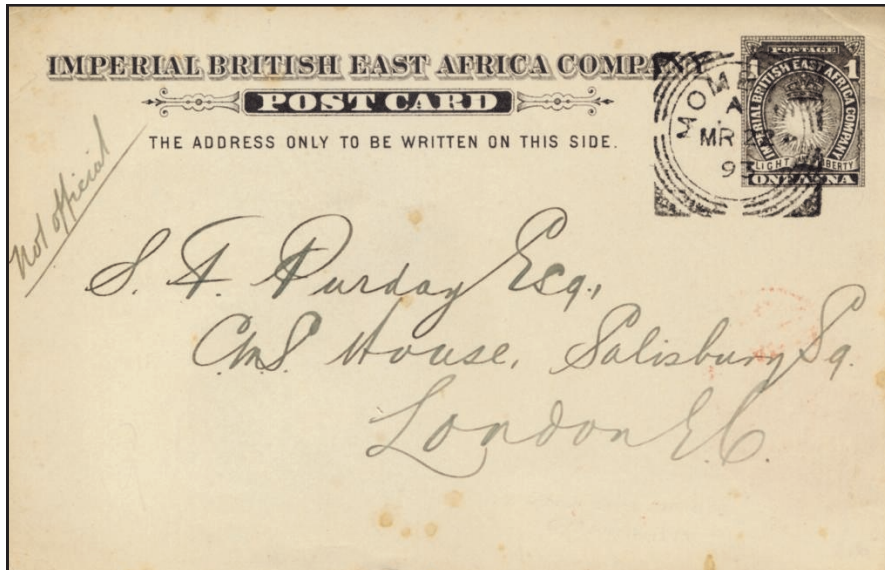 IMPERIAL BRITISH EAST AFRICA COMPANY
POST CARD
THE ADDRESS ONLY TO BE WRITTEN ON THIS SIDE.
POSTAGE
1 1
IMPERIAL BRITISH EAST AFRICA COMPANY
LIGHT BERTY
ONE ANNA
MOMB
A
MR 22
93
Not official
S. F. Purday Esq.,
C.M.S. House, Salisbury Sq.
London E.C.